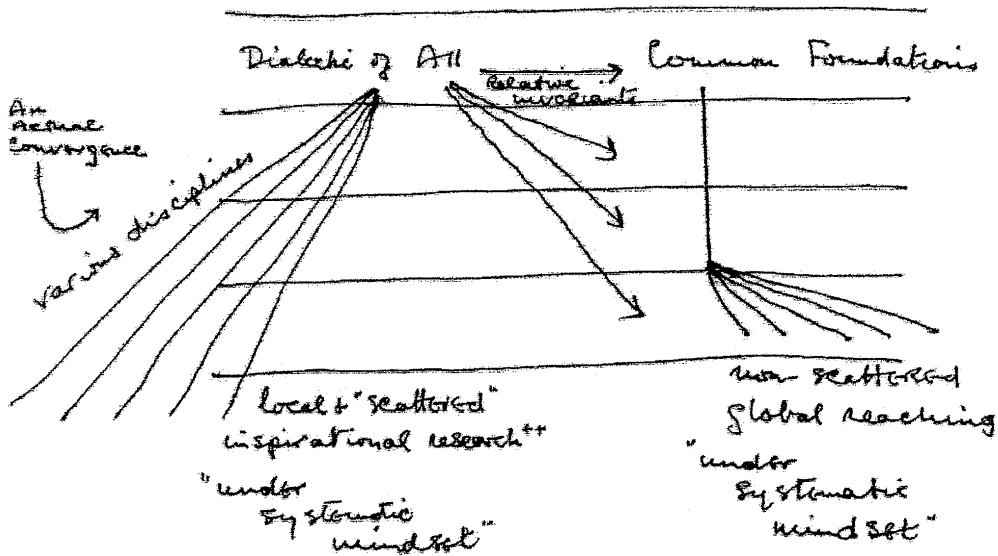 Dialectic of All
Common Foundations
Relative
invariants
An
Actual
Convergence
various disciplines
local & "scattered"
inspirational research++
"under
systematic
mindset"
non-scattered
global reaching
"under
systematic
mindset"